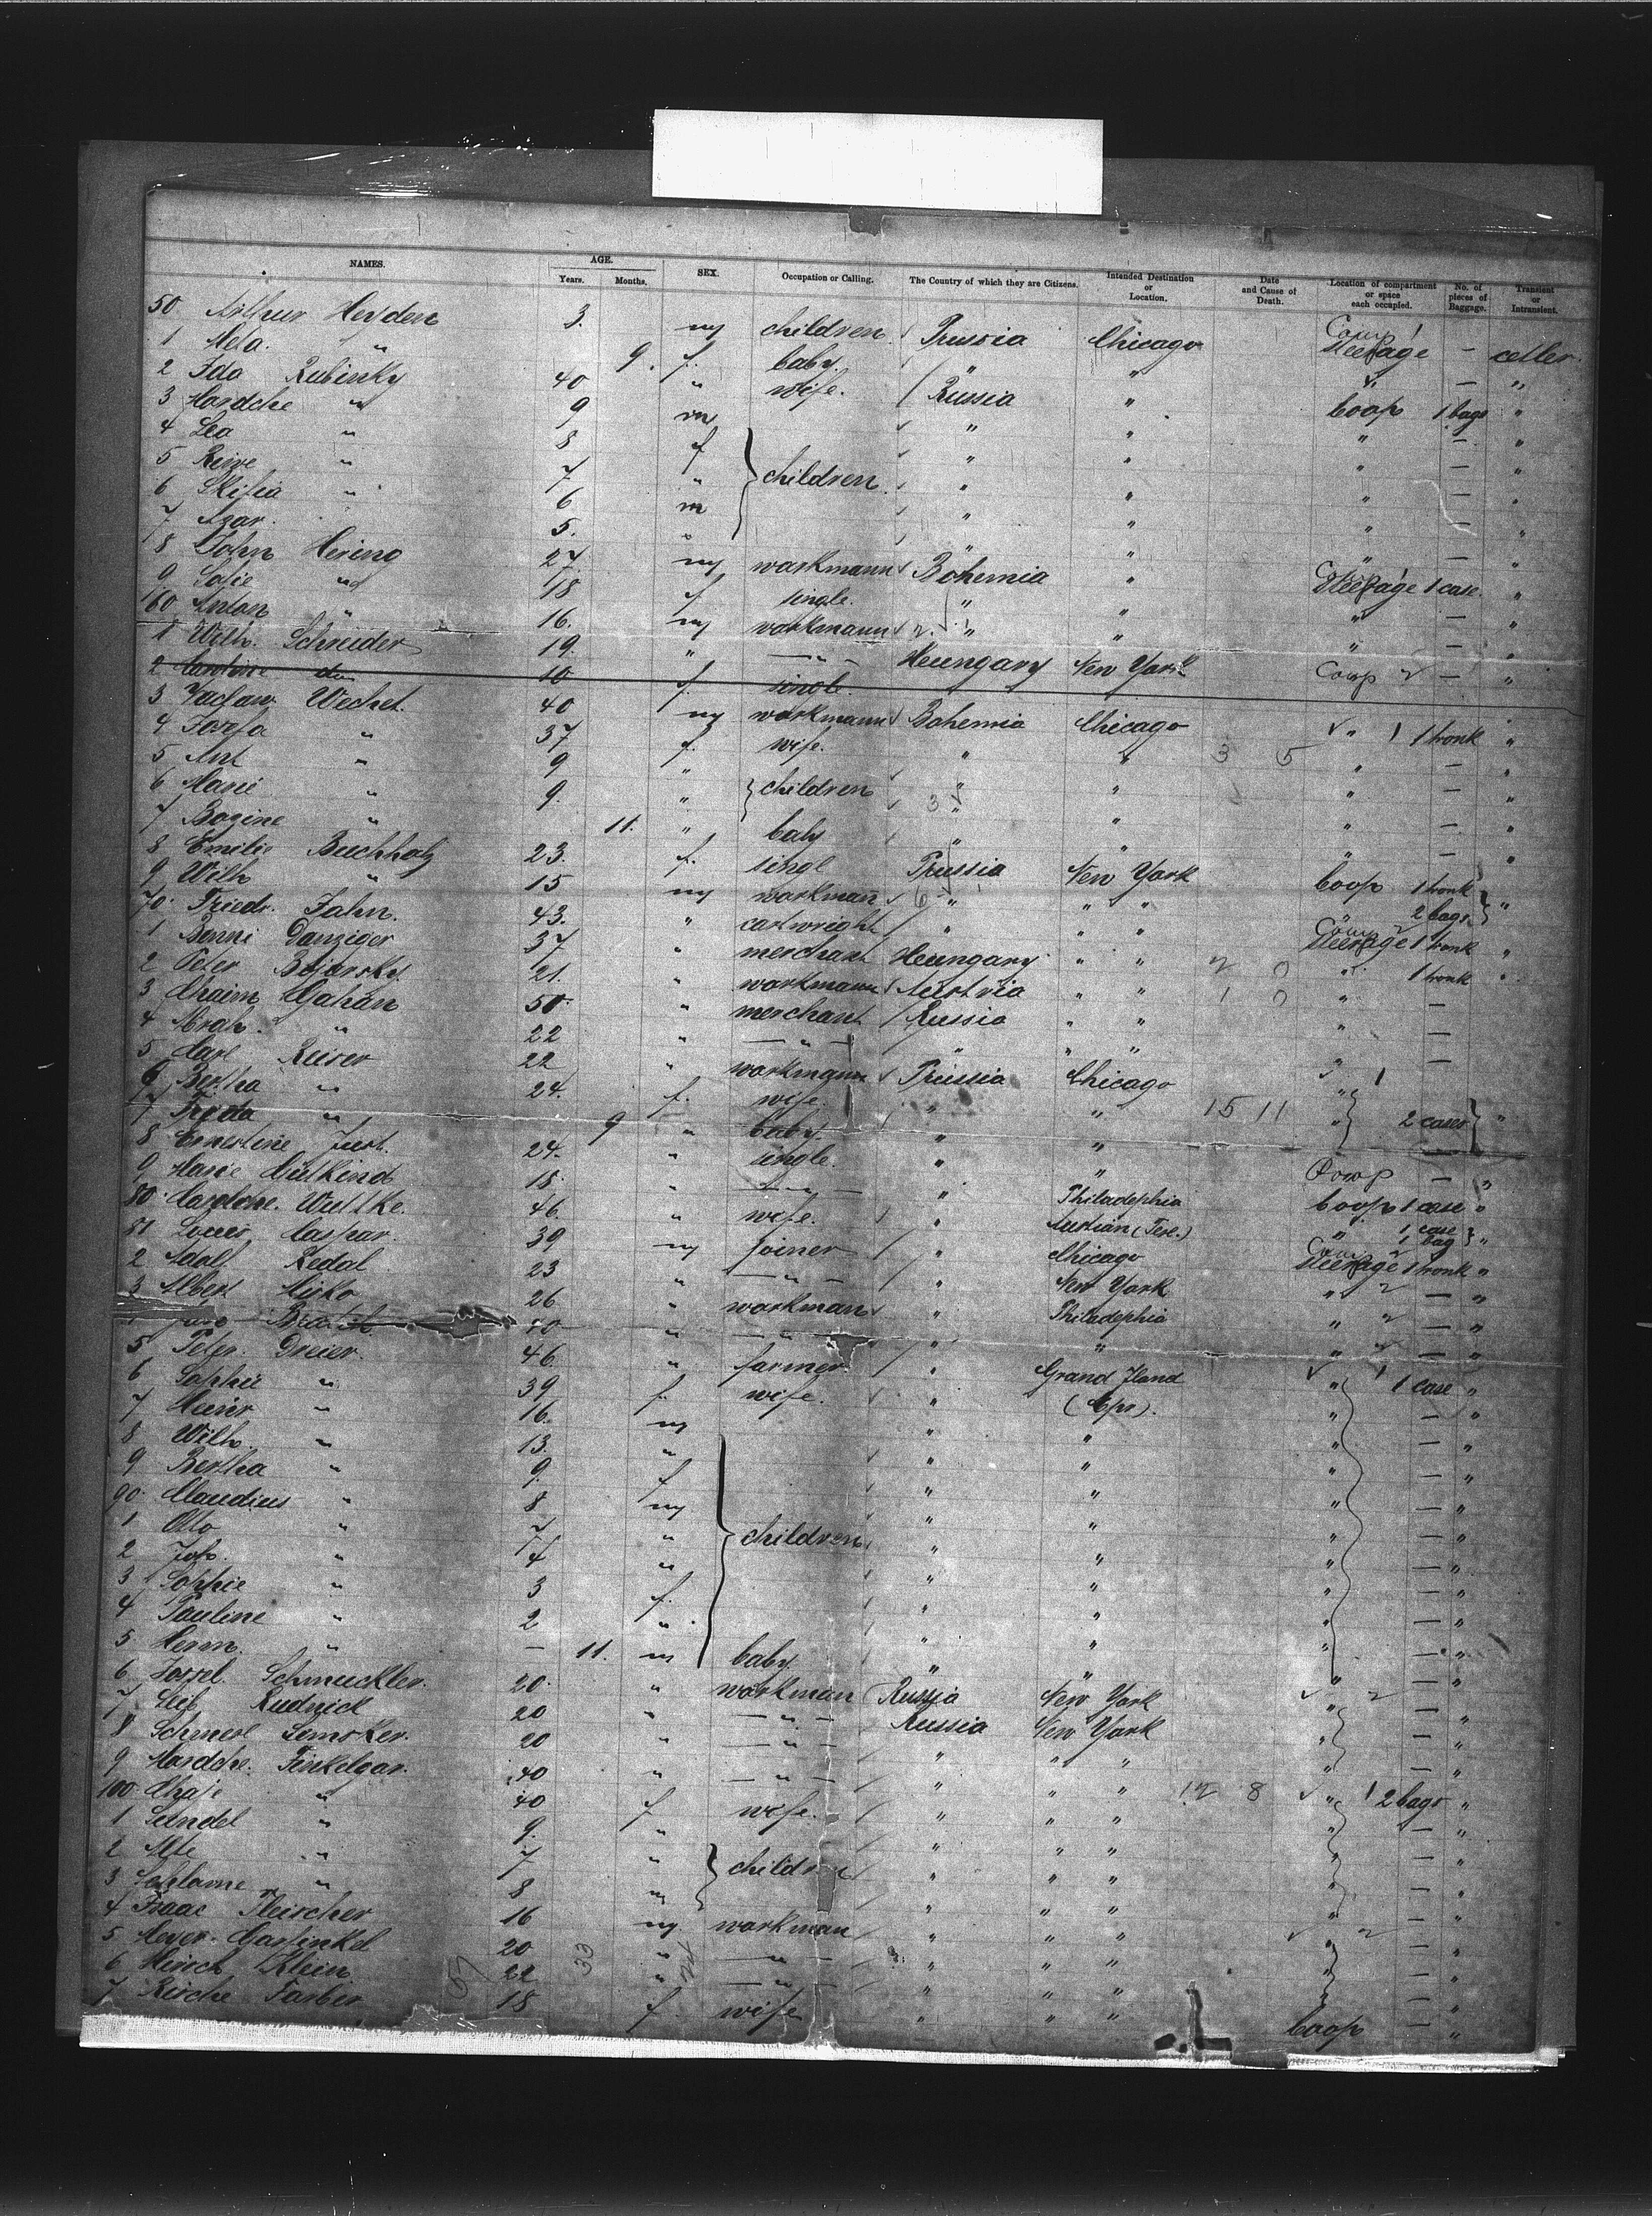 NAMES. AGE. Years. Months. SEX. Occupation or Calling. The Country of which they are Citizens. Intended Destination or Location. Date and Cause of Death. Location of compartment or space each occupied. No. of pieces of Baggage. Transient or Intransient.
50 Arthur Heyden 3. m children Prussia Chicago Comp 1 Steerage –
1 Meta " 9. f. baby " " " – "
2 Ida Rubinky 40 " wife. Russia " Coop 1 bags "
3 Mordche " 9 m " " " – "
4 Lea " 8 f " " " – "
5 " 7 " children " " " – "
6 " 6 m " " " – "
7 5. " " " " – "
8 John Hering 27. m workmann Bohemia " Steerage 1 case "
9 " 18 f. single. " " " – "
60 Anton " 16. m workmann " " " – "
1 Wilh. Schneider 19. " – " – Heungary New York Comp 2 – "
2 10 f. single.
3 Wechet 40 m workmann Bohemia Chicago " 1 1 tronk "
4 Josefa " 37 f. wife. " " 3 5 " – "
5 Ant " 9 " " " " – "
6 Marie " 9. " children " " " – "
7 Bozine " 11. " baby " " " – "
8 Emilie Buchholz 23. f. singl Prussia New York Coop 1 tronk
9 Wilh " 15 m workman " " " " 2 bags "
70. Friedr. Jahn. 43. " cartwright " " " Comp 2 Steerage 1 tronk "
1 Benni Danziger 37 " merchant Heungary " " 2 0 " 1 tronk "
2 Peter 21. " workmann Austria " " 1 0 " –
3 Chaim 50 " merchant Russia " " " –
4 Abrah. " 22 " – " – " " " " –
5 Carl Reiser 22 " workmann Prussia Chicago " 1
6 Bertha " 24. f. wife. " " 15 11 " 2 cases "
7 Frieda " 9 " baby " "
8 Ernestine Just. 24. " single. " " Comp – "
9 Marie Gutkind 18. " – " – " Philadephia Coop 1 case "
80. Caroline. Wuttke. 46. " wife. " " 1 case 1 bag "
81 Louis Caspar. 39 m joiner " Chicago Comp 2 Steerage 1 tronk "
2 Adolf Redal 23 " – " – " New York " 2 – "
3 Albert 26 " workman " Philadephia " 2 – "
40 " – " – " " " – "
5 Peter. Dreier. 46. " farmer. " Grand Iland " 1 1 case "
6 Sophie " 39 f. wife. " " – "
7 Heinr " 16. m " " " – "
8 Wilh. " 13. " " " " – "
9 Bertha " 9. f " " " – "
90. Claudius " 8 m " " " – "
1 Otto " 7 " children " " " – "
2 Joh. " 4 " " " " – "
3 Sophie " 3 f. " " " – "
4 Pauline " 2 " " " " – "
5 Herm. " – 11. m baby. " " " – "
6 Schmuckler. 20. " workman Russia New York " 2 – "
7 Leib Rudnick 20 " – " – Russia New York " – "
8 20 " – " – " " " " – "
9 Mordche. 40 " – " – " " " 12 8 " 1 2 bags "
100 Chaje " 40 f wife. " " " " – "
1 " 9. " " " " " – "
2 Alte " 7 " children " " " " – "
3 Schlome " 8 m " " " " – "
4 Isaac Fleischer 16 m workman " " " 2 – "
5 Meyer. Garfinkel 20 " – " – " " " " – "
6 Hirsch Klein 22 " – " – " " " " – "
7 18 f wife " " " Coop – "